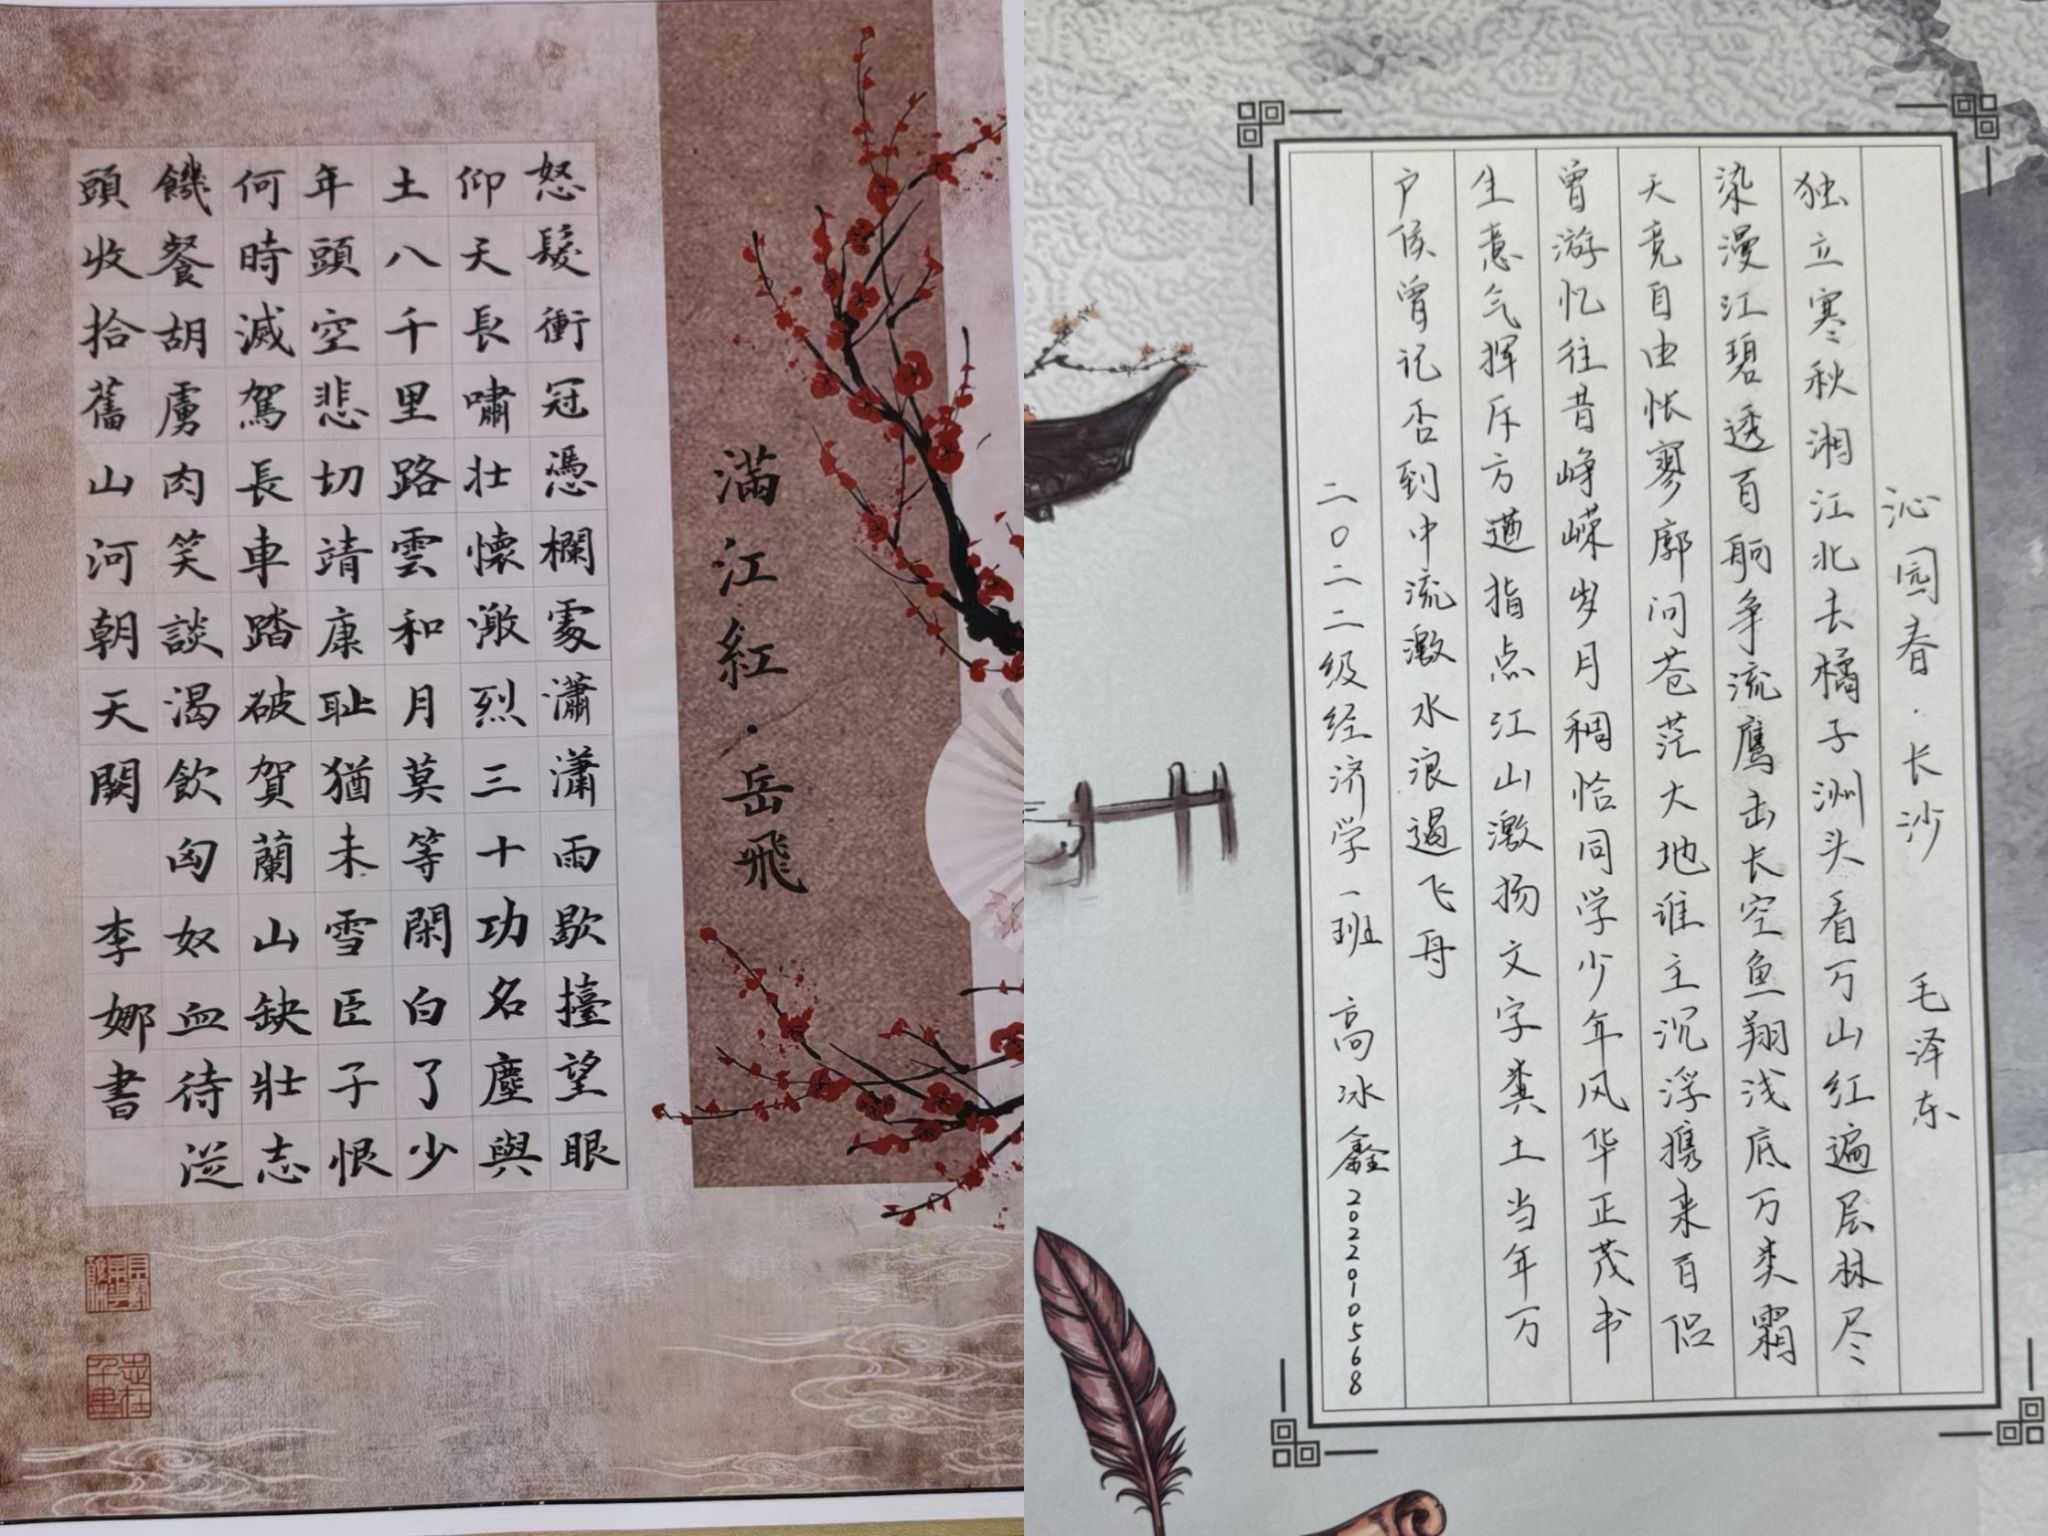 滿江紅·岳飛
怒髮衝冠憑欄處瀟瀟雨歇擡望眼
仰天長嘯壮懷激烈三十功名塵與
土八千里路雲和月莫等閑白了少
年頭空悲切靖康耻猶未雪臣子恨
何時滅駕長車踏破賀蘭山缺壯志
饑餐胡虜肉笑談渴飲匈奴血待從
頭收拾舊山河朝天闕 李娜書
志在千里
沁园春·长沙 毛泽东
独立寒秋湘江北去橘子洲头看万山红遍层林尽
染漫江碧透百舸争流鹰击长空鱼翔浅底万类霜
天竞自由怅寥廓问苍茫大地谁主沉浮携来百侣
曾游忆往昔峥嵘岁月稠恰同学少年风华正茂书
生意气挥斥方遒指点江山激扬文字粪土当年万
户侯曾记否到中流激水浪遏飞舟
二〇二二级经济学一班 高冰鑫 2022010568